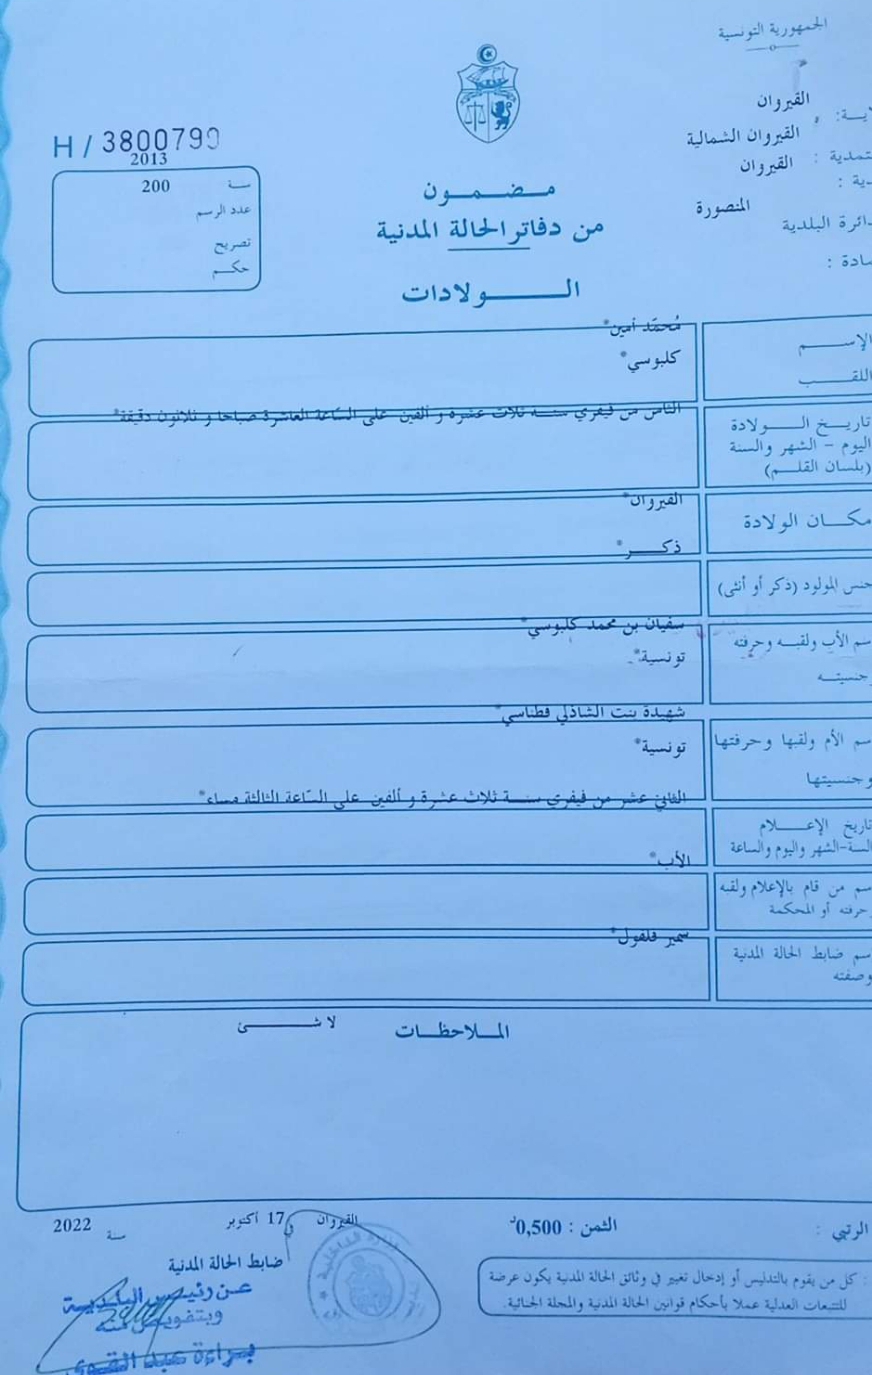 الجمهورية التونسية
القيروان
القيروان الشمالية
القيروان
المنصورة
دائرة البلدية
H / 3800799
2013
سنة 200
عدد الرسم
تصريح
حكم
مضمون
من دفاتر الحالة المدنية
الولادات
الإسم
مُحمّد أمين*
اللقب
كلبوسي*
تاريخ الولادة
اليوم – الشهر والسنة
(بلسان القلم)
الثامن من فيفري سنة ثلاث عشرة و ألفين على السّاعة العاشرة صباحا و ثلاثون دقيقة*
مكان الولادة
القيروان*
جنس المولود (ذكر أو أنثى)
ذكر*
إسم الأب ولقبه وحرفته
وجنسيته
سفيان بن محمد كلبوسي*
تونسية*
إسم الأم ولقبها وحرفتها
وجنسيتها
شهيدة بنت الشاذلي قطاسي*
تونسية*
تاريخ الإعلام
السنة-الشهر واليوم والساعة
الثاني عشر من فيفري سنة ثلاث عشرة و ألفين على السّاعة الثالثة مساء*
إسم من قام بالإعلام ولقبه
وحرفته أو المحكمة
الأب*
إسم ضابط الحالة المدنية
وصفته
سمير فلفول*
الملاحظات
لا شئ
الثمن : 0,500د
القيروان في 17 أكتوبر سنة 2022
ضابط الحالة المدنية
عن رئيس البلدية
وبتفويض منه
براءة عبد القوي
كل من يقوم بالتدليس أو إدخال تغيير في وثائق الحالة المدنية يكون عرضة
للتتبعات العدلية عملا بأحكام قوانين الحالة المدنية والمجلة الجنائية.